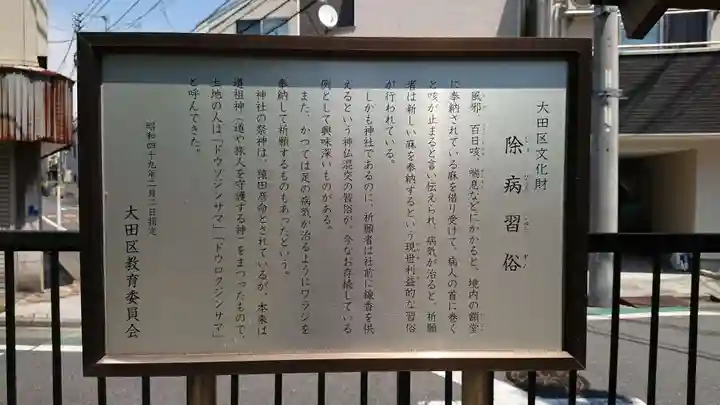 大田区文化財
除病習俗
風邪、百日咳、喘息などにかかると、境内の額堂
に奉納されている麻を借り受けて、病人の首に巻く
と咳が止まると言い伝えられ、病気が治ると、祈願
者は新しい麻を奉納するという現世利益的な習俗
が行われている。
しかも神社であるのに、祈願者は社前に線香を供
えるという神仏混交の習俗が、今なお存続している
例として興味深いものがある。
また、かつては足の病気が治るようにワラジを
奉納して祈願するものもあったという。
神社の祭神は、猿田彦命とされているが、本来は
道祖神(道や旅人を守護する神)をまつったもので、
土地の人は「ドウソジンサマ」「ドウロクジンサマ」
と呼んできた。
昭和四十九年二月二日指定
大田区教育委員会